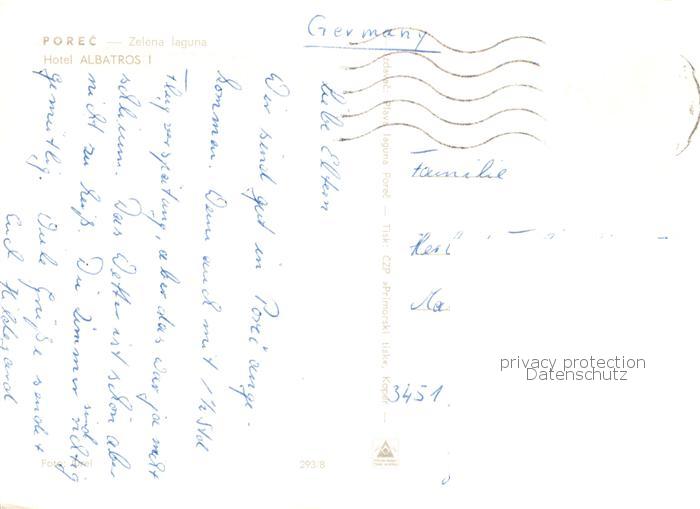 POREČ — Zelena laguna
Hotel ALBATROS I
Liebe Eltern
Wir sind gut in Poreč ange-
kommen. Wenn auch mit 1½ Std
Flugverspätung, aber das war ja nicht
schlimm. Das Wetter ist schön aber
nicht zu heiß. Die Zimmer sind richtig
gemütlig. Viele Grüße sendet
Euch Hildegard
Germany
Familie
3451
laguna Poreč — Tisk: ČZP »Primorski tisk«, Koper —
293/8
privacy protection
Datenschutz